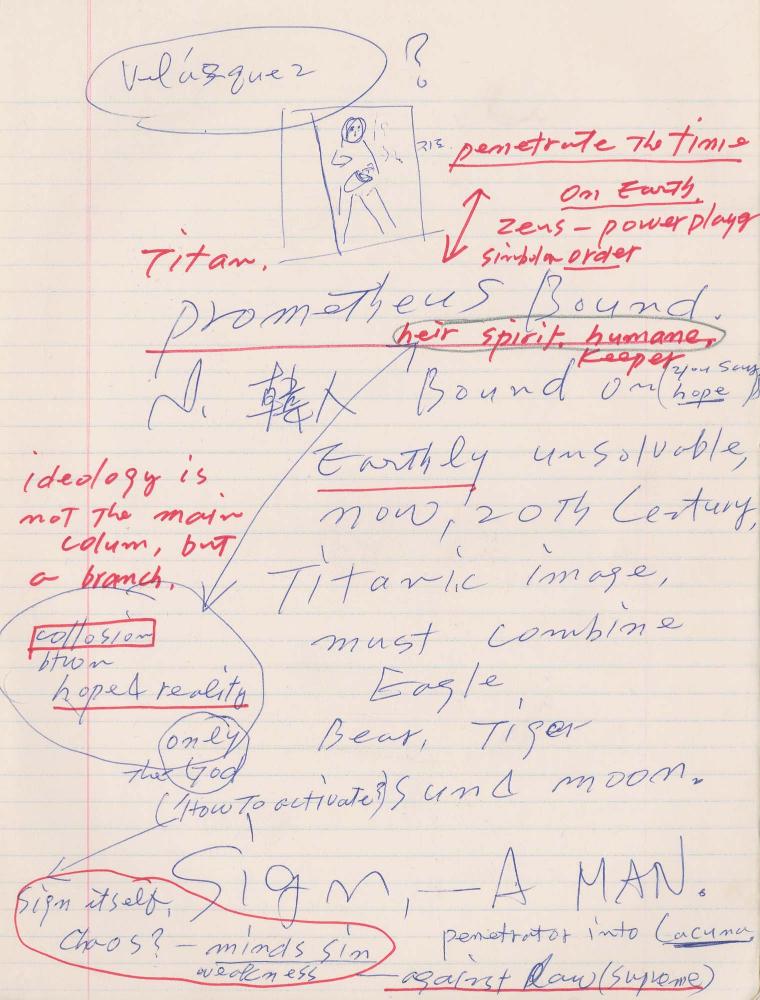 Velázquez ?
penetrate The Time
On Earth.
Zeus – power playgr
simbolon order
Titan.
Prometheus Bound.
heir spirit. humane.
Keeper
N. 韓人 Bound on (you say
hope)
Earthly unsolvable,
now, 20th Century,
ideology is
not The main
colum, but
a branch.
Titanic image,
must combine
Eagle
Bear, Tiger
Sun & moon.
collosion
btwn
hope & reality
only
the God
(How To activate?)
Sign, — A MAN.
Sign itself,
Chaos? – minds sin
weakness
penetrator into Lacuna
against Law (Supreme)